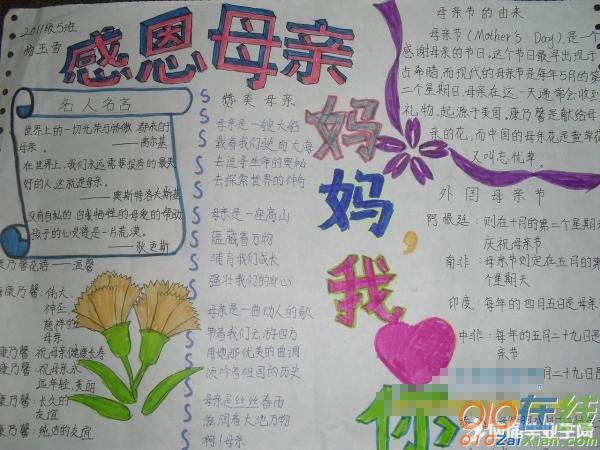 2011级5班
感恩母亲
名人名言
世界上的一切光荣与骄傲,都来自于
母亲。
——高尔基
在世界上,我们永远需要报答的最美
好的人这就是母亲。
——奥斯特洛夫斯基
没有自私的
孩子的心灵将是一片荒漠。
——狄更斯
康乃馨花语——温馨
康乃馨:伟大、
神圣、
慈祥的
母亲
康乃馨:祝母亲健康长寿
康乃馨:祝母亲永
远年轻、美丽
康乃馨:永久的
友谊
康乃馨:纯洁的友谊
赞美母亲
母亲是一艘大船
载着我们驶向大海
去追寻生命的奥秘
去探索世界的神奇
母亲是一座高山
蕴藏着万物
哺育我们成长
强壮我们的身心
母亲是一曲动人的歌
带着我们去游四方
用她那优美的曲调
谈吟着祖国的历史
母亲是丝丝春雨
滋润着大地万物
啊!母亲
妈妈,我
你
母亲节的由来
母亲节(Mother's Day),是一个
感谢母亲的节日。这个节日最早出现于
古希腊,而现代的母亲节是每年5月的第
二个星期日,母亲在这一天通常会收到
礼物,起源于美国,康乃馨是献给母
亲的花,而中国的母亲花是萱草花
又叫忘忧草。
外国母亲节
阿根廷:则在十月的第二个星期天
庆祝母亲节
南非:母亲节则定在五月的第
个星期天
印度:每年的四月五日是母亲
中非:每年的五月二十九日是
亲节
年的五月二十九日是
010在线
010ZaiXian.com